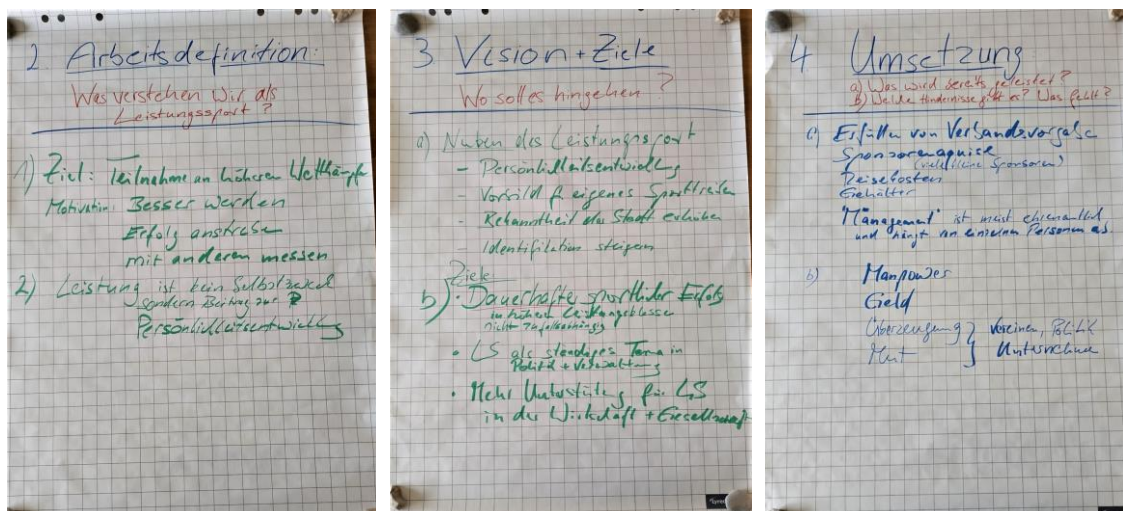 2 Arbeitsdefinition:
Was verstehen wir als
Leistungssport?
1) Ziel: Teilnahme an höheren Wettkämpfe
Motivation: Besser werden
Erfolg anstreben
mit anderen messen
2) Leistung ist kein Selbstzweck
sondern Beitrag zur
Persönlichkeitsentwicklung
3 Vision + Ziele
Wo soll es hingehen?
a) Nutzen des Leistungssport
- Persönlichkeitsentwicklung
Vorbild f. eigenes Sporttreiben
- Bekanntheit der Stadt erhöhen
Identifikation steigern
Ziele:
b) • Dauerhafter sportlicher Erfolg
in höheren Leistungsklassen
nicht zufallsabhängig
• LS als ständiges Thema in
Politik + Verwaltung
• Mehr Unterstützung für LS
in der Wirtschaft + Gesellschaft
4 Umsetzung
a) Was wird bereits geleistet?
b) Welche Hindernisse gibt es? Was fehlt?
a) Erfüllen von Verbandsvorgabe
Sponsorenaquise
(viele kleine Sponsoren)
Reisekosten
Gehälter
"Management" ist meist ehrenamtlich
und hängt an einzelnen Personen ab.
b) Manpower
Geld
Überzeugung } Vereinen, Politik
Mut } Unternehmen